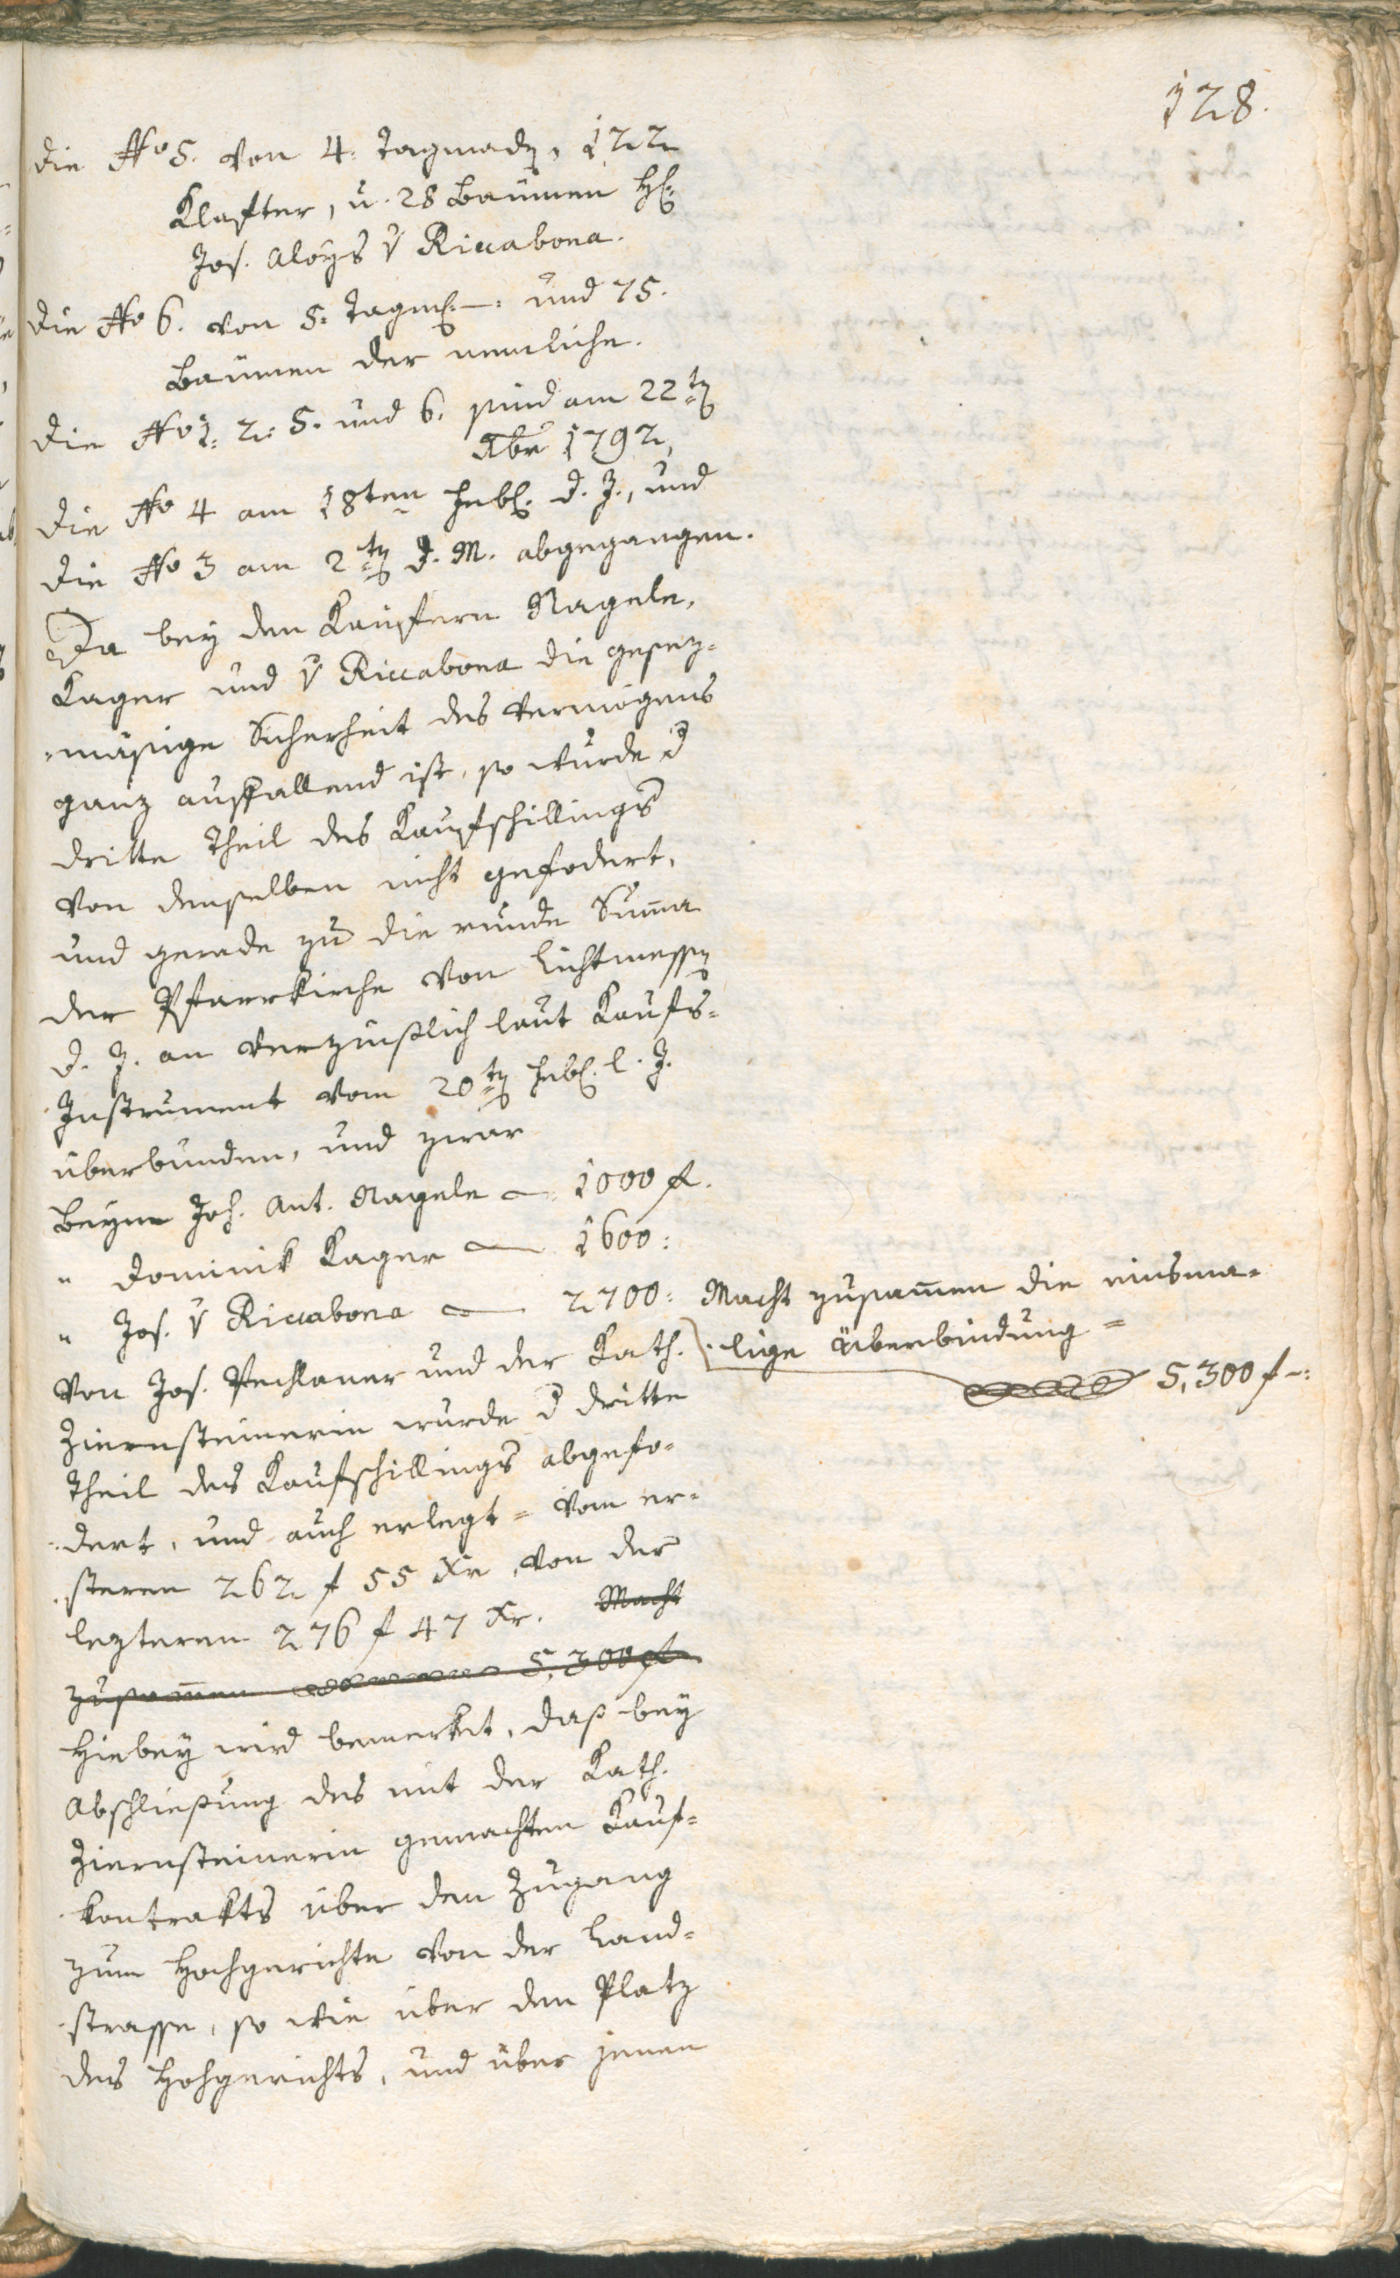 128.
die No 5. von 4. Tagmadn, 122
Klafter, u. 28 Bäumen H:
Jos. Aloys v Riccabona.
die No 6. von 5. Tagm. —: und 75.
Bäumen der nemliche.
die No 1. 2. 5. und 6. sind am 22tn
Xbr 1792,
die No 4 am 18ten Feb. d. J., und
die No 3 am 2tn d. M. abgegangen.
Da bey den Käufern Nagele,
Kager und v Riccabona die gesez=
=mäsige Sicherheit des Vermögens
ganz auffallend ist, so wurde d
dritte Theil des Kaufschillings
von denselben nicht gefodert,
und gerade zu die runde Suma
der Pfarrkirche von Lichtmessn
d. J. an verzinßlich laut Kaufs=
Instrument vom 20tn Feb. l. J.
überbunden, und zwar
Beym Joh. Ant. Nagele — 1000 f.
" Dominik Kager — 1600:
" Jos. v Riccabona — 2700: Macht zusamen die einsma=
lige Überbindung =
5,300 f —:
von Jos. Pechlaner und der Kath.
Ziernsteinerin wurde d dritte
Theil des Kaufschillings abgefo=
=dert, und auch erlegt = vom er=
steren 262 f 55 Xr, von der
lezteren 276 f 47 Xr. Macht
zusamen 5,300 f
Hiebey wird bemerket, daß bey
Abschließung des mit der Kath.
Ziernsteinerin gemachten Kauf=
kontrakts über den Zugang
zum Hochgerichte von der Land=
strasse, so wie über den Platz
des Hohgerichts, und über jenen